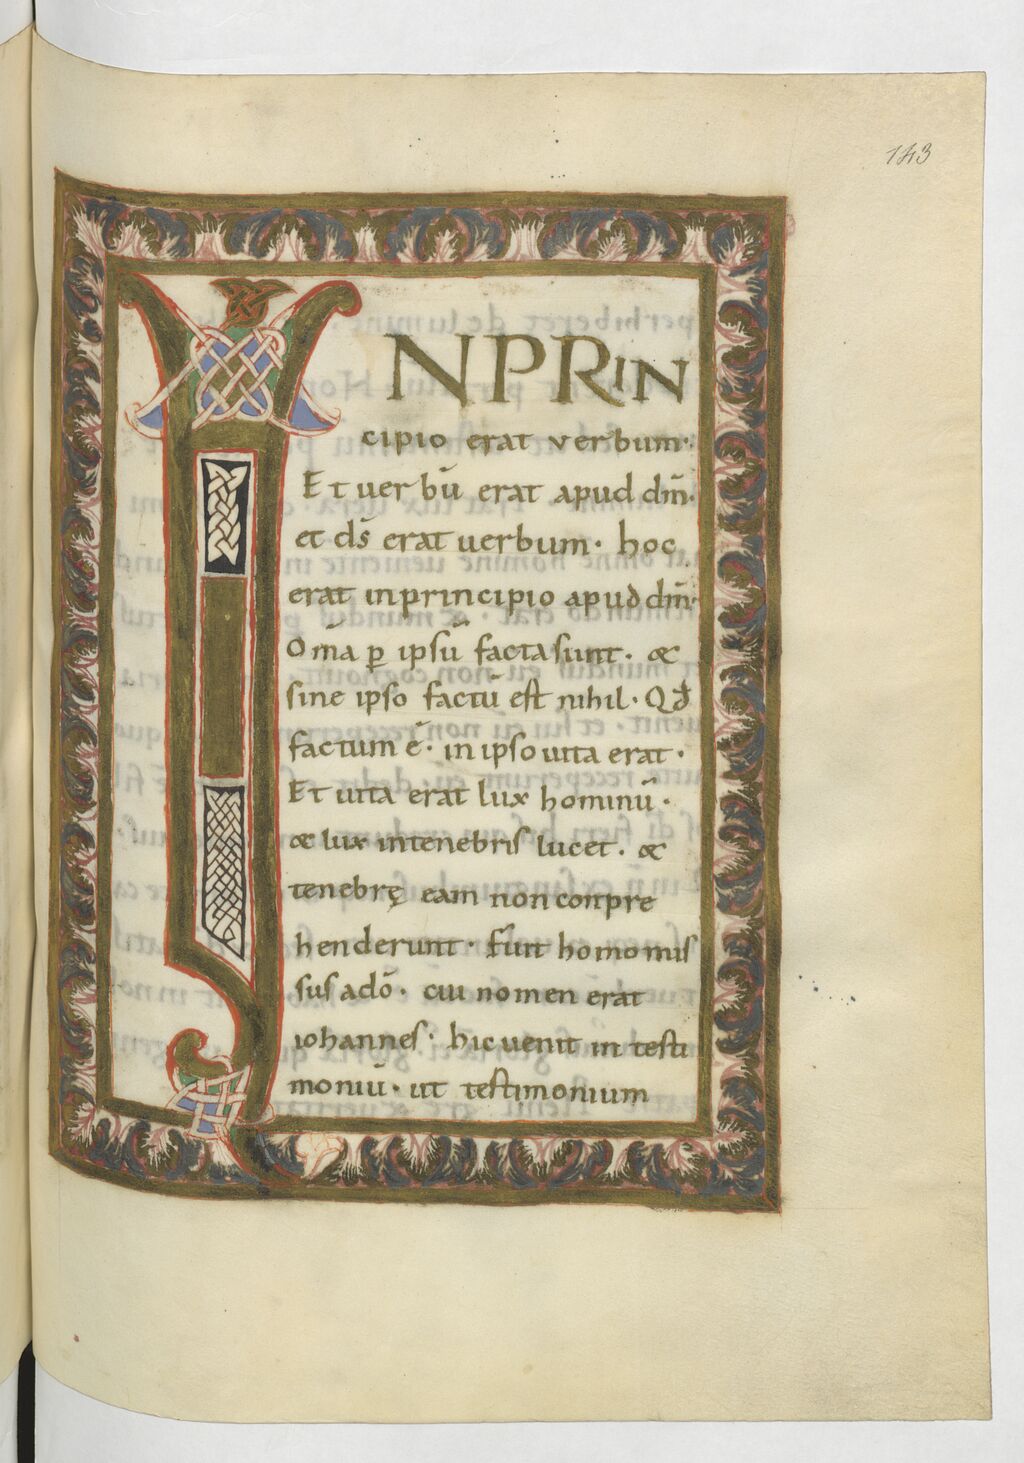 143
INPRIN
cipio erat verbum·
Et uerbū erat apud dm̄·
et ds̄ erat uerbum· hoc
erat inprincipio apud dm̄·
Om̄a ꝑ ipsū facta sunt· &
sine ipso factū est nihil· Qđ
factum ē· in ipso uita erat·
Et uita erat lux hominū·
& lux intenebris lucet· &
tenebrę eam non conpre
henderunt· Fuit homo mis
sus adō· cui nomen erat
iohannes· hic uenit in testi
moniū· ut testimonium